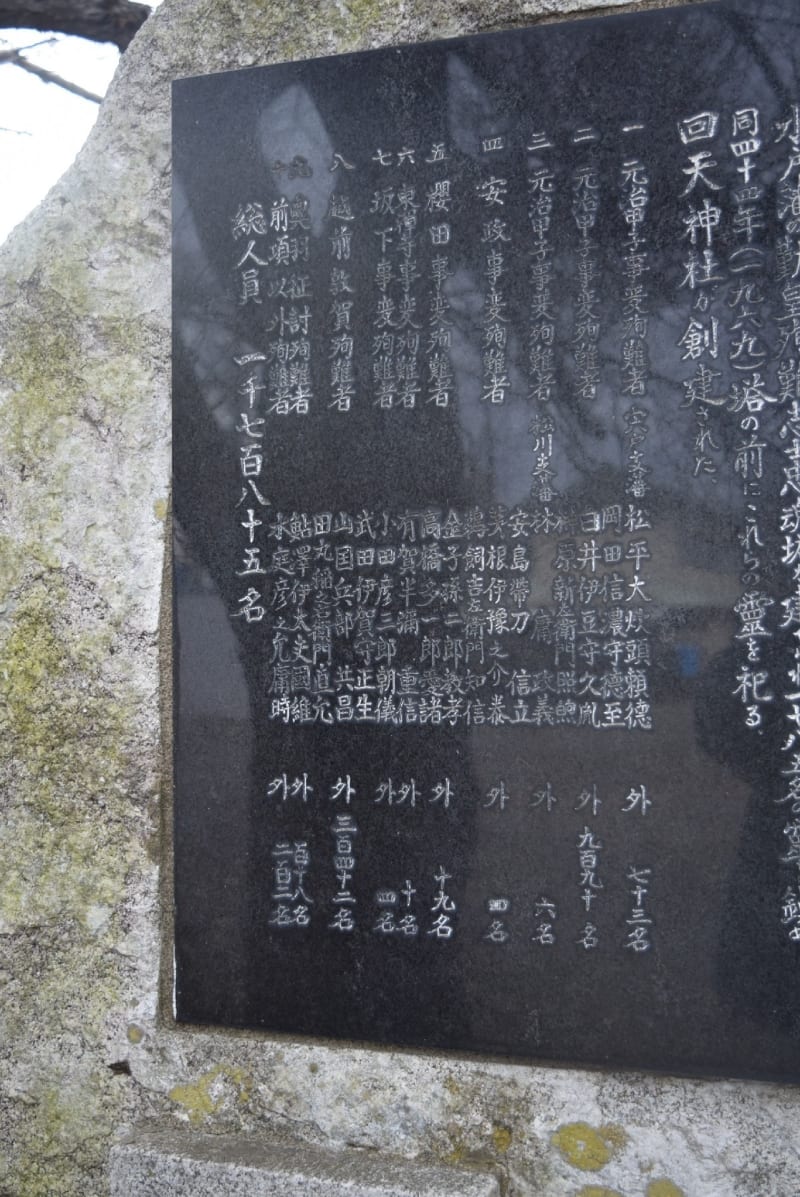 同四十四年(一九六九)塔の前にこれらの霊を祀る
回天神社が創建された、
一 元治甲子事変殉難者 宍戸支藩 松平大炊頭頼徳
岡田信濃守徳至 外 七十三名
二 元治甲子事変殉難者 臼井伊豆守久胤
榊原新左衛門照煦 外 九百九十名
三 元治甲子事変殉難者 松川支藩 林 庸政義 外 六名
四 安政事変殉難者 安島帯刀 信立
茅根伊豫之介泰
鵜飼吉左衛門知信 外 四名
五 櫻田事変殉難者 金子孫二郎教孝
高橋多一郎愛諸 外 十九名
六 東禅寺事変殉難者 有賀半彌 重信 外 十名
七 坂下事変殉難者 小田彦二郎朝儀 外 四名
八 越前敦賀殉難者 武田伊賀守正生
山国兵部 共昌
田丸稲之衛門直允 外 三百四十二名
九 奥羽征討殉難者 鮎澤伊太夫國維 外 百十八名
十 前項以外殉難者 水庭彦之允庸時 外 二百二名
総人員 一千七百八十五名